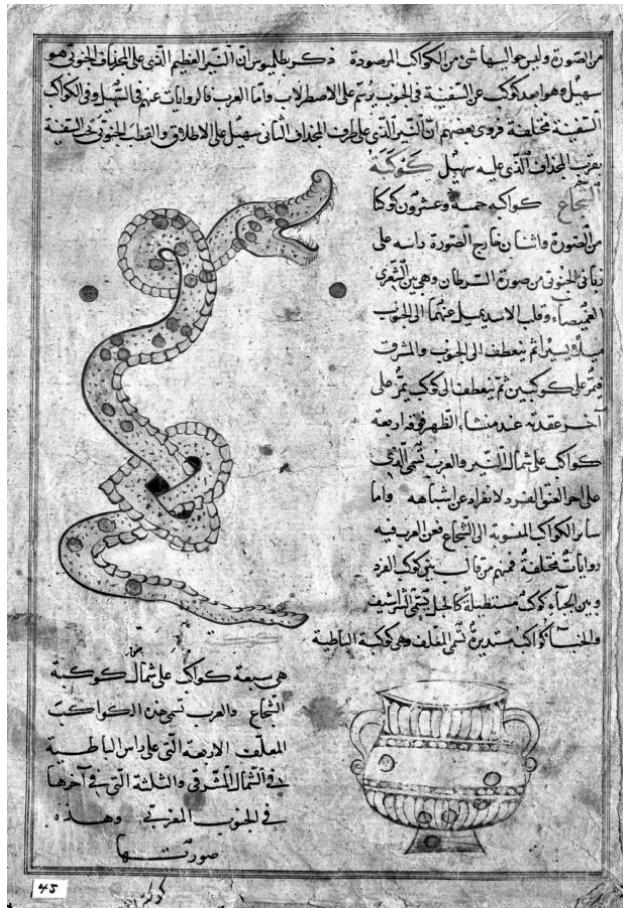 من الصورة وليس حواليها شئ من الكواكب المرصودة ذكر بطلميوس ان النير العظيم الذى على المجداف الجنوبى هو
سهيل وهو ابعد كوكب عن السفينة فى الجنوب يرسم على الاصطرلاب واما العرب فالروايات عنهم فى سهيل وفى الكواكب
السفينة مختلفة فروى بعضهم ان النير الذى على طرف المجداف الثانى سهيل على الاطلاق والقطب الجنوبى تحت السفينة
بقرب المجداف الذى عليه سهيل كوكبة
الشجاع كواكبه خمسة وعشرون كوكبا
من الصورة واثنان خارج الصورة راسه على
زبانى الجنوبى من صورة السرطان وهى بين الشعرى
الغميصاء وقلب الاسد يميل عنهما الى الجنوب
ميلا يسيرا ثم ينعطف الى الجنوب والمشرق
فيمر على كوكبين ثم ينعطف الى كوكب يمر على
آخر عقدته عند منشاء الظهر فوقه اربعة
كواكب على شمال النير والعرب تسمى الذى
على آخر العنق الفرد لانفراده عن اشباهه واما
سائر الكواكب المنسوبة الى الشجاع فعن العرب فيه
روايات مختلفة فمنهم من قال بين كوكب الفرد
وبين الخباء كوكب مستطيلة كالحبل تسمى الشراسيف
والخباء كواكب مستديرة تسمى المعلف وهى كوكبة الباطية
هى سبعة كواكب على شمال كوكبة
الشجاع والعرب تسمى هذه الكواكب
المعلف الاربعة التى على راس الباطية
فى الشمال المشرقى والثلثة التى فى آخرها
فى الجنوب المغربى وهذه
صورتها
45